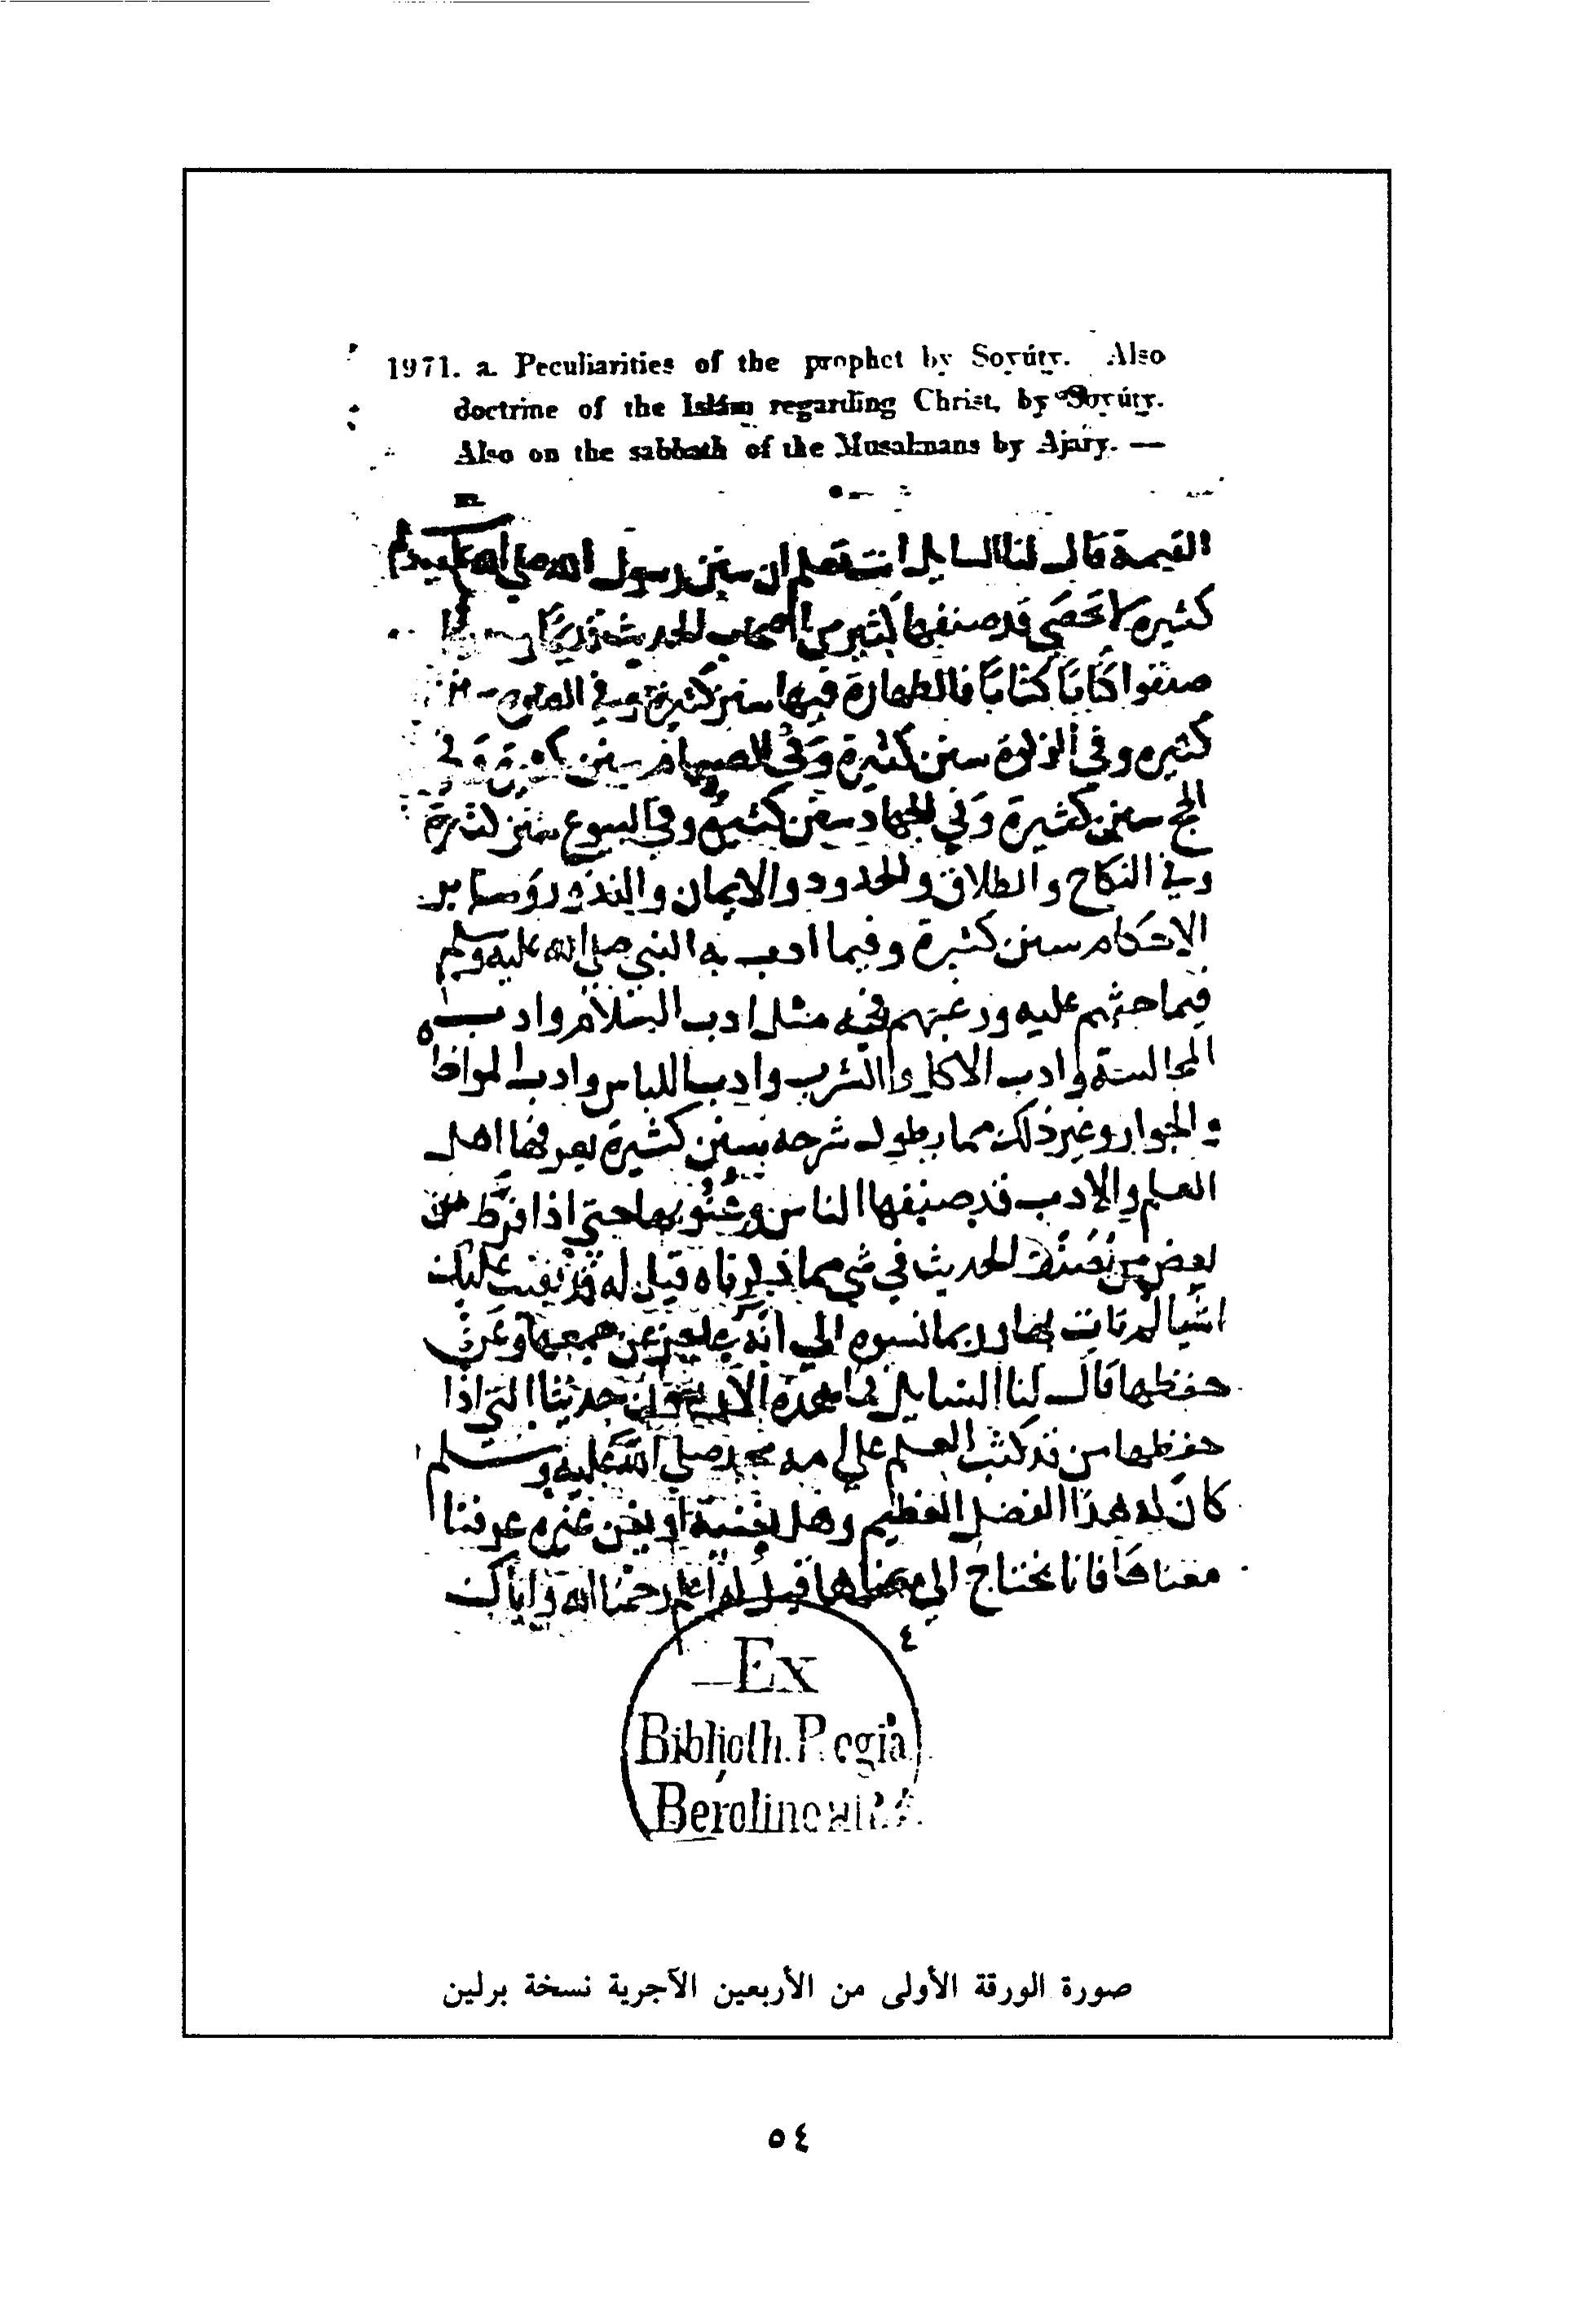 1971. a. Peculiarities of the prophet by Soyúty. Also
doctrine of the Islám regarding Christ, by Soyúty.
Also on the sabbath of the Musalmans by Ajáry. —
القيمة قال لنا السايل انت تعلم ان سنن رسول الله صلى الله عليه وسلم
كثيرة لا تحصى قد صنفها كثير من اصحاب الحديث قديما
صنفوا كتابا كتابا فالطهارة فيها سنن كثيرة وفي
كثيره وفي الزلوة سنن كثيرة وفي الصيام سنن كثيرة وفي
الحج سنن كثيرة وفي الجهاد سنن كثيرة وفي البيوع سنن كثيرة
وفي النكاح والطلاق والحدود والايمان والنذور وساير
الاحكام سنن كثيرة وفيما ادب به النبي صلى الله عليه وسلم
فيما حثهم عليه ورغبهم فيه مثل ادب السلام وادب
المجالسة وادب الاكل والشرب وادب اللباس وادب
والجوار وغير ذلك مما يطول شرحه بسنن كثيرة يعرفها اهل
العلم والادب قد صنفها الناس وعنوا بها حتى اذا فرط من
بعض من الحديث في شي مما ذكرناه قيل له قد بقيت عليك
اشيا لم تات بها وربما نسبوه الى انه عجز عن جمعها وعن
حفظها قال لنا السايل فما هذه الاربعون حديثا التي اذا
حفظها من قد كتب العلم على امة محمد صلى الله عليه وسلم
كان له هذا الفضل العظيم وهل نحن عرفنا
معناها فانا نحتاج الى معناها قيل له اعلم رحمنا الله واياك
٤
Ex
Biblioth. Regia
Berolinensi.
صورة الورقة الأولى من الأربعين الآجرية نسخة برلين
٥٤